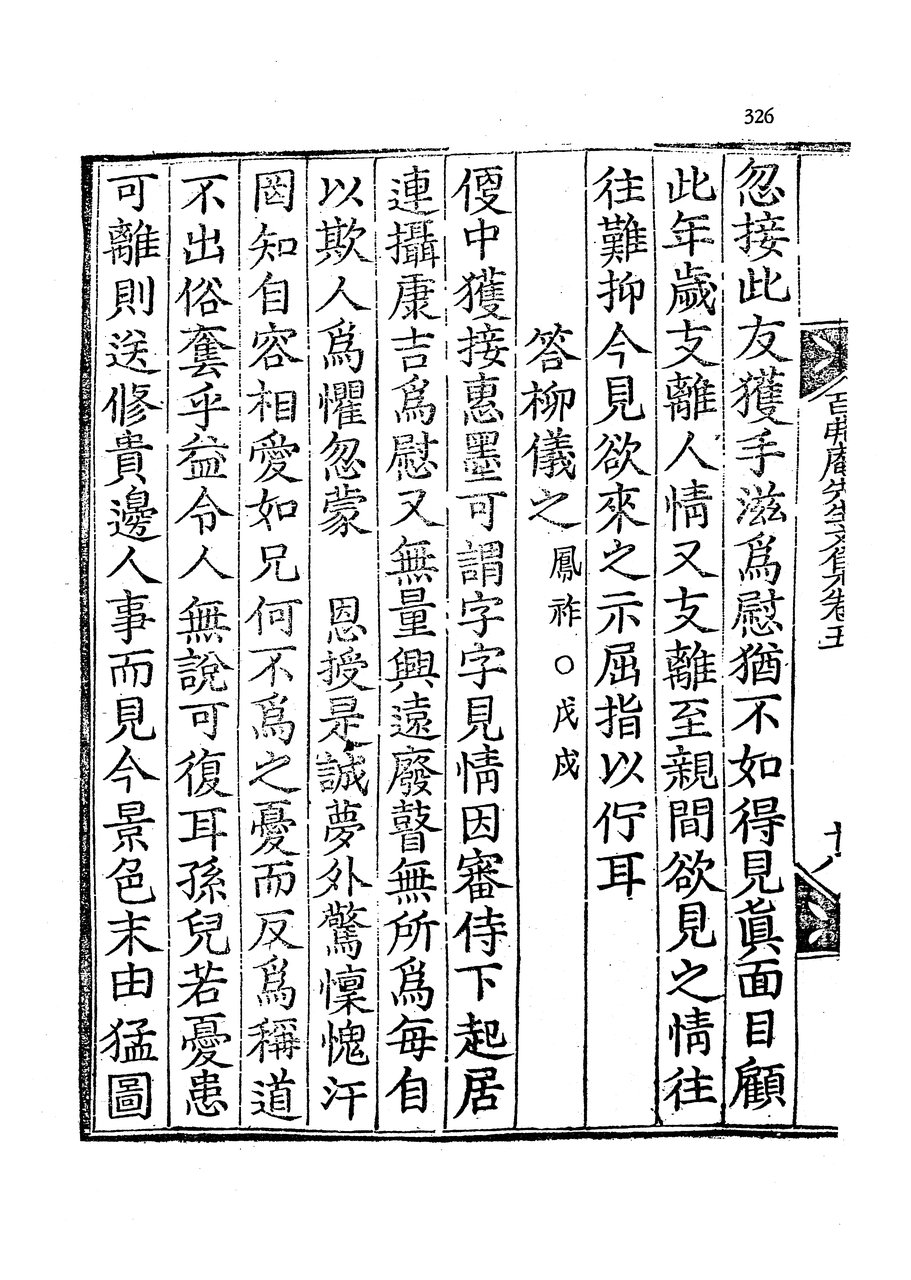 326
忽接此友獲手滋爲慰猶不如得見眞面目顧
此年歲支離人情又支離至親間欲見之情往
往難抑今見欲來之示屈指以佇耳
答柳儀之鳳祚○戊戌
便中獲接惠墨可謂字字見情因審侍下起居
連攝康吉爲慰又無量興遠廢瞽無所爲每自
以欺人爲懼忽蒙　恩授是誠夢外驚懍愧汗
罔知自容相愛如兄何不爲之憂而反爲稱道
不出俗套乎益令人無說可復耳孫兒若憂患
可離則送修貴邊人事而見今景色末由猛圖
庵先生文集卷五